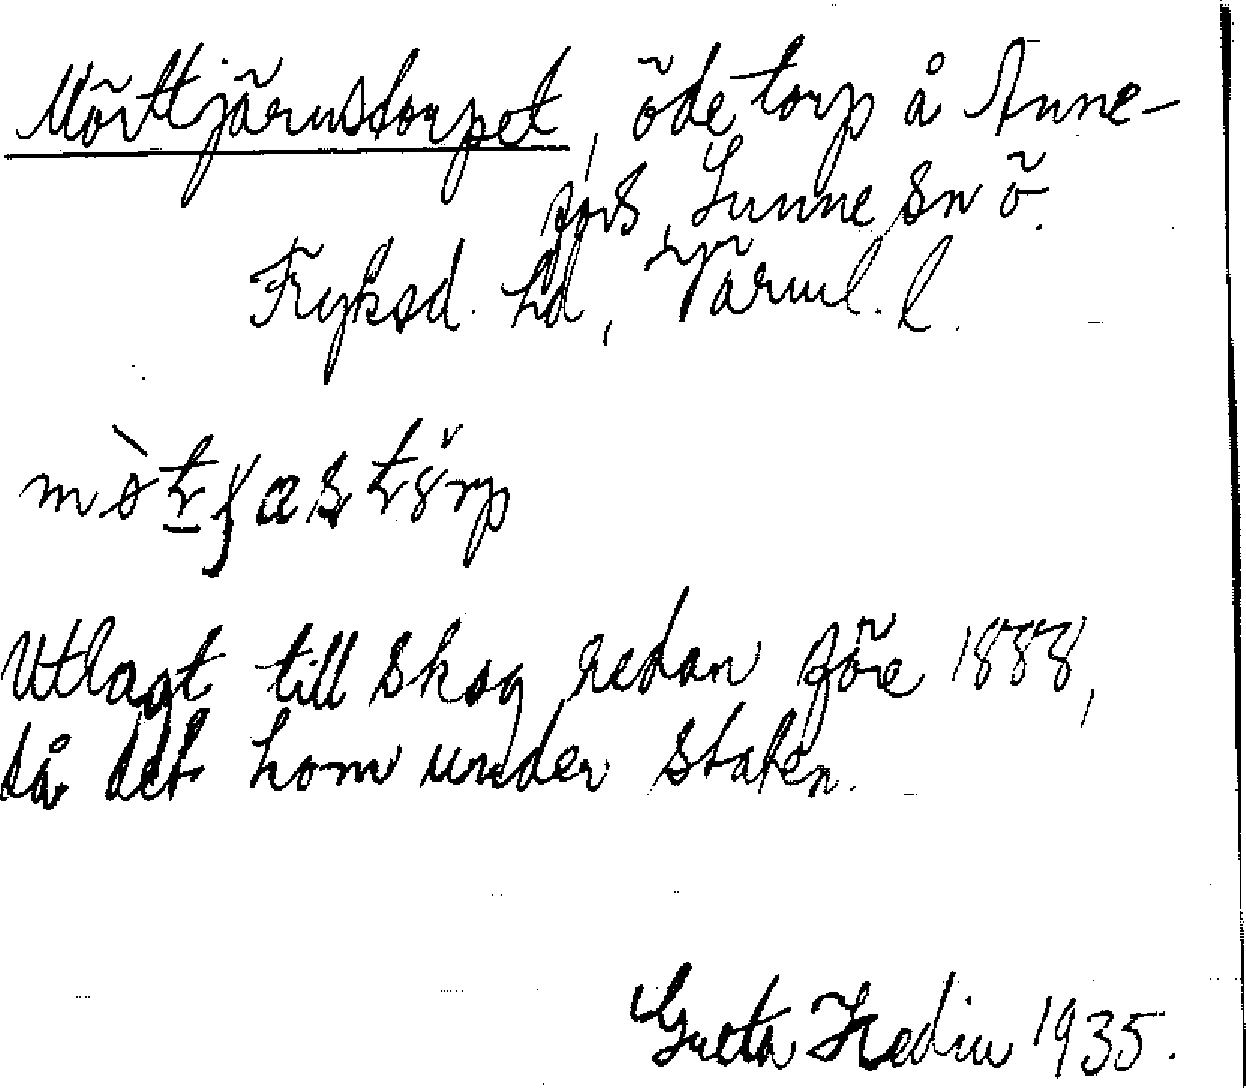 Mörttjärnstorpet, öde torp å Anne-
fors, Sunne sn ö.
Fryksd. hd, Värml. l.
Utlagt till skog redan före 1888,
då det kom under staten.
Greta Hedin 1935.